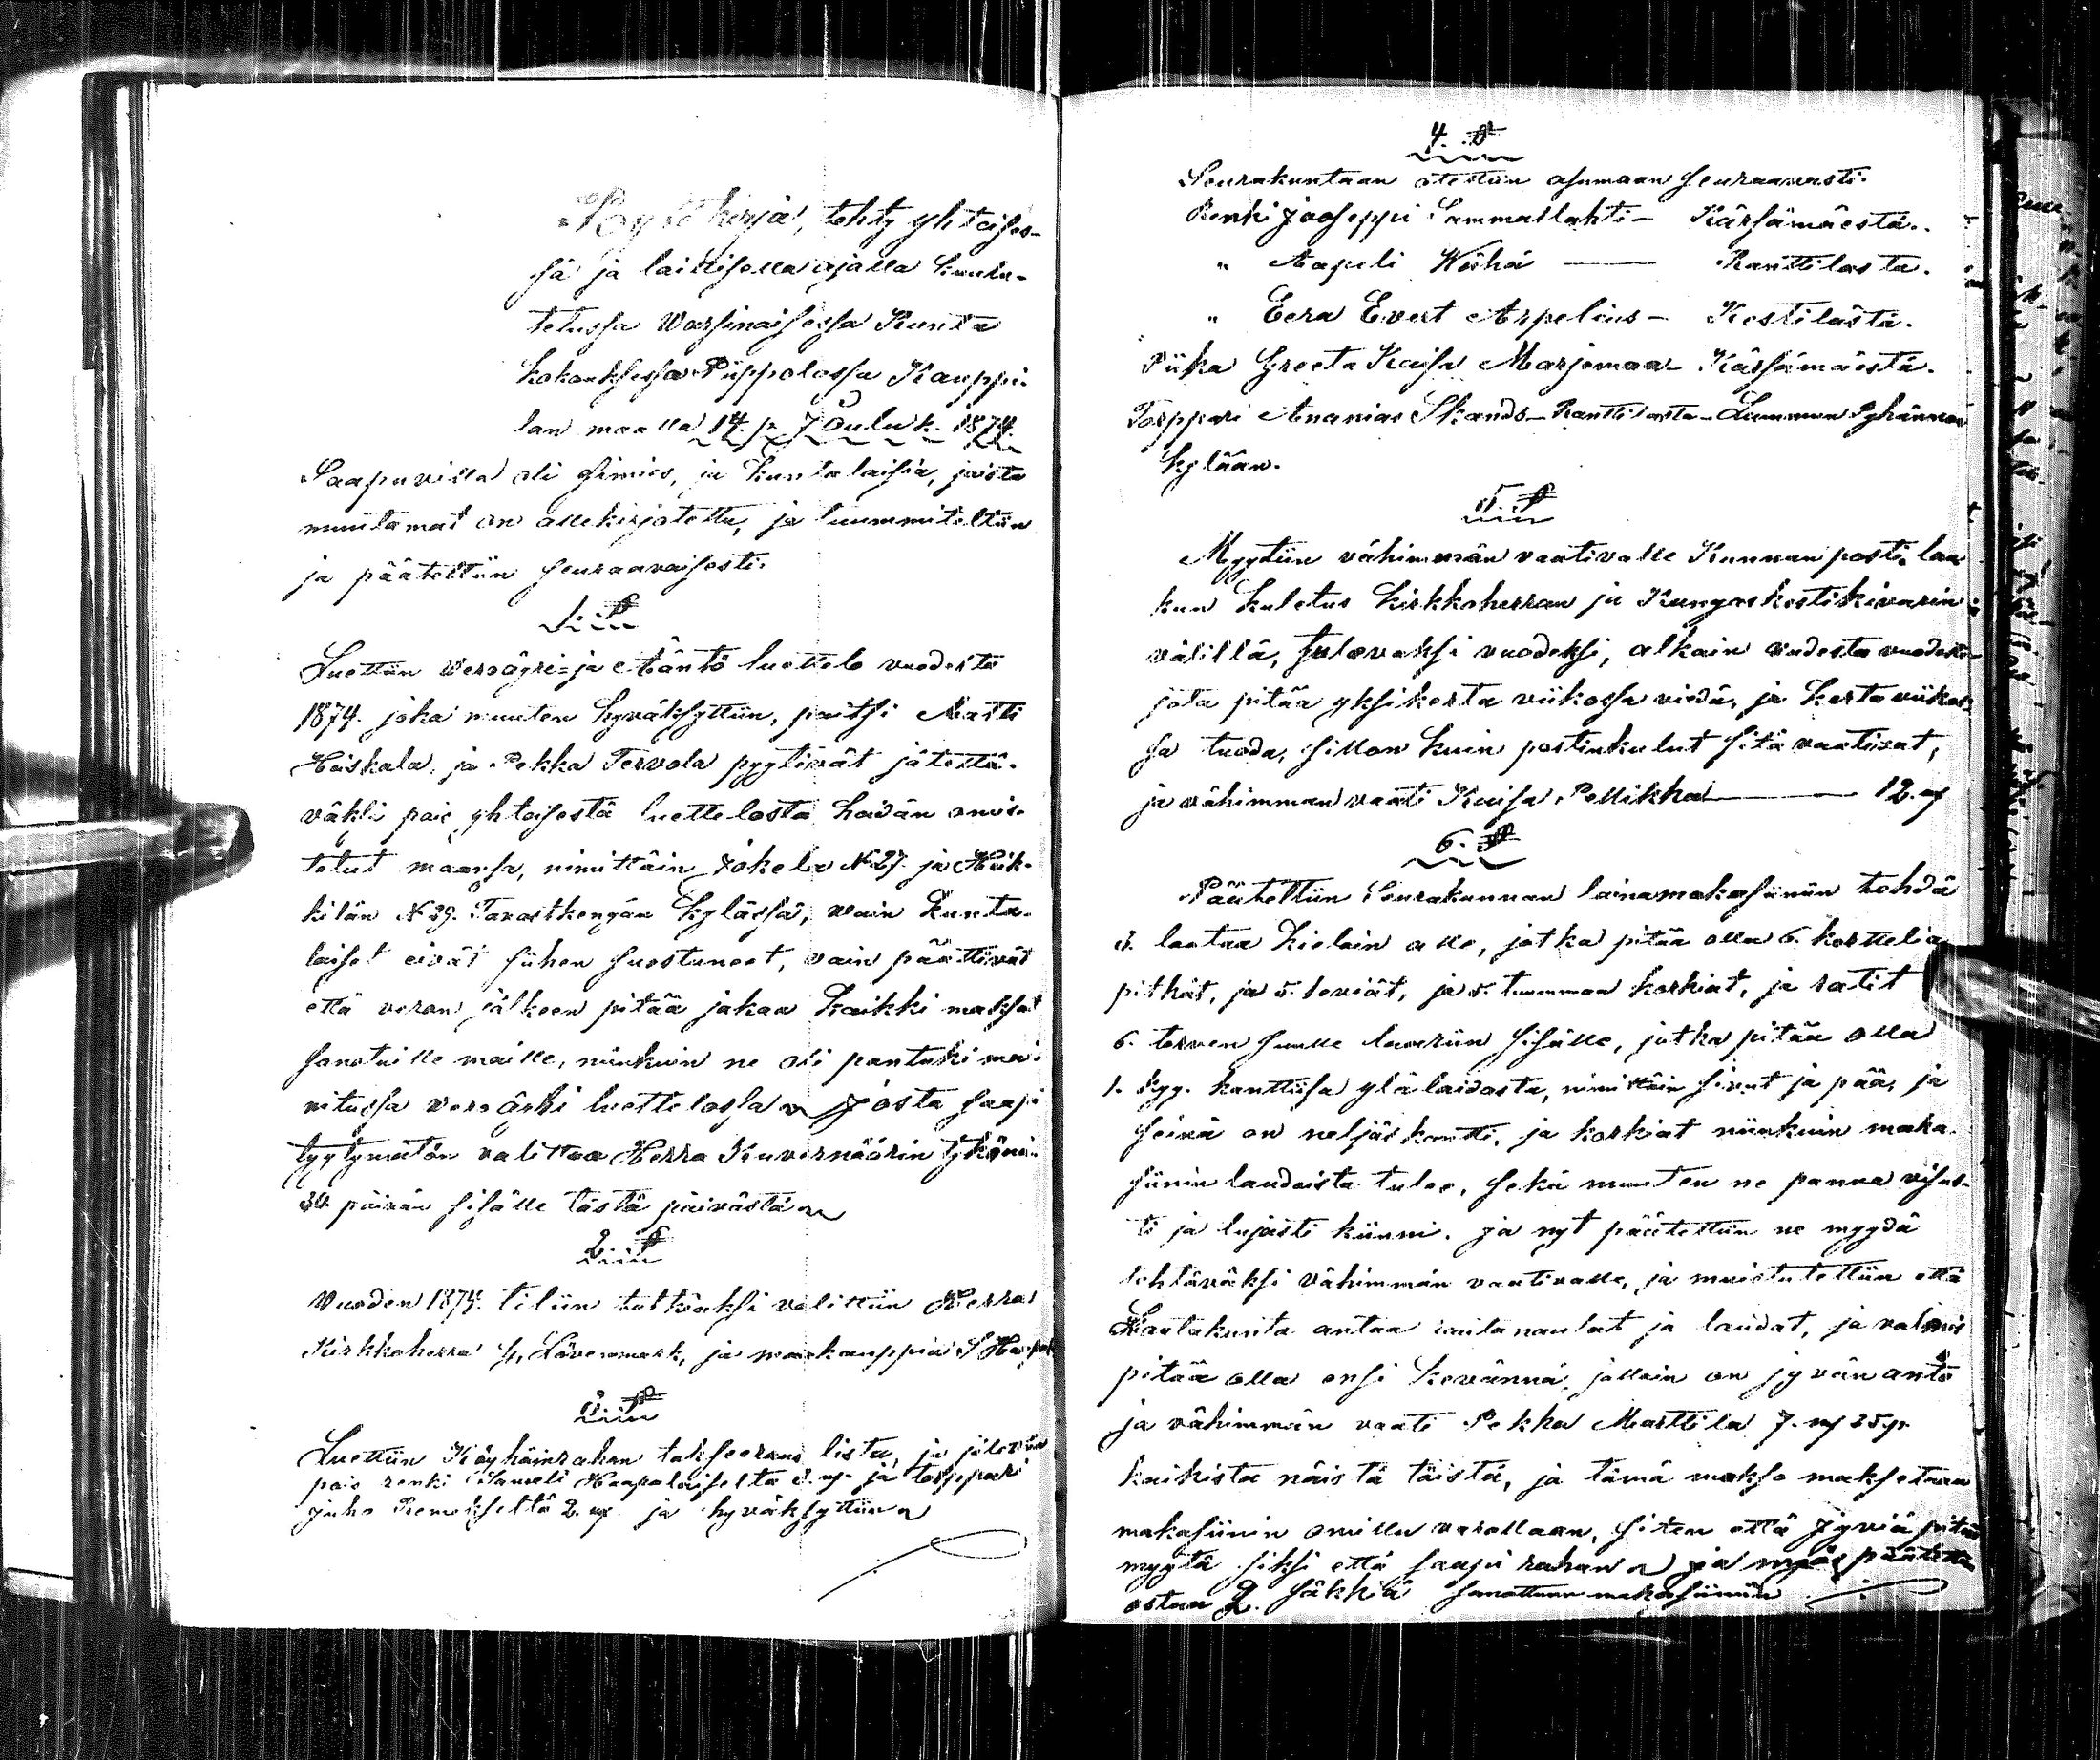 Pöytäkirja, tehty yhteises-
sä ja laillisella ajalla kuulu-
tetussa Varsinaisessa Kunta
kokouksessa Piippolassa Kauppi-
lan maalla 14. p. Jouluk. 1874.
Saapuvilla oli esimies, ja kuntalaisia, joista
muutamat on allekirjotettu, ja tuummiteltiin
ja päätettiin seuraavaisesti.
1. §
Luettiin veroäyri- ja Ääntö luettelo vuodesta
1874. joka muuten hyväksyttiin, paitsi Matti
Häiskala, ja Pekka Tervola pyytivät jätettä-
väksi pois yhteisestä luettelosta heidän omis-
tetut maansa, nimittäin Jokela N 27. ja Heik-
kilän N 29. Tavastkengän kylässä, vain kunta-
laiset eivät siihen suostuneet, vain päättivät
että veron jälkeen pitää jakaa kaikki maksut
sanotuille maille, niinkuin ne oli pantuki mai-
nitussa veroäyri luettelossa Josta saapi
tyytymätön valittaa Herra Kuvernöörin tykönä
30. päivän sisälle tästä päivästä
2. §
Vuoden 1874. tiliin tutkiaksi valittiin Herra
Kirkkoherra Lövenmark, ja maakauppias
3. §
Luettiin Köyhäinrahan takseeraus lista, ja jätettiin
pois renki Samueli Haapalaiselta 2. my. ja torppari
Juho Remekseltä 2. my. ja hyväksyttiin
4. §
Seurakuntaan otettiin asumaan seuraavasti.
Renki Jooseppi Sammallahti — Kärsämäestä.
" Aapeli Kähä — Ranttilasta.
" Eera Evert Arpelius — Kestilästä.
Piika Greeta Kaisa Marjomaa — Kärsämäestä.
Torppari Ananias Skands — Ranttilasta — Lamman Pyhännän
kylään.
5. §
Myytiin vähimmän vaativalle Kunnan posti lau
kun kuletus kirkkoherran ja Kungaskestikivarin
välillä, tulevaksi vuodeksi, alkain uudesta vuodesta
jota pitää yksikerta viikossa viedä, ja kerta viikos-
sa tuoda, sillon kuin postinkulut sitä vaativat,
ja vähimmän vaati Kaisa Pellikka — 12. my
6. §
Päätettiin Seurakunnan lainamakasiiniin tehdä
laataa kielain alle, jotka pitää olla 6. korttelia
pitkät, ja 5. leviät, ja 5. tuumman korkiat, ja ratit
6. terven suulle laariin sisälle, jotka pitää olla
1. kyy. kanttiisa ylä laidasta, nimittäin sivut ja pää, ja
seinä on neljäs kantti, ja korkiat niinkuin maka-
siinin laudoista tulee, sekä muuten ne panna visus-
ti ja lujasti kiinni. Ja nyt päätettiin ne myydä
tehtäväksi vähimmän vaativalle, ja muistutettiin että
Lautakunta antaa rautanaulat ja laudat, ja valmis
pitää olla ensi kevännä, jolloin on jyvän anto
ja vähimmän vaati Pekka Marttila 7. my 25 p.
kaikista näistä töistä, ja tämä makso maksetaan
makasiinin omilla varoillaan, siten että Jyviä pitää
myytä siksi että saapi rahan ja myös päätettiin
ostaa 2. säkkiä sanottuun makasiiniin